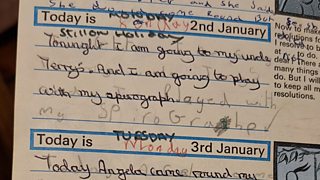 She said
Today is Monday 2nd January
Still on holiday
Tonight I am going to my uncle
Terrys. And I am going to play
with my
played with
my SPiroGrapher
Today is TUESDAY 3rd January
Monday
Today Angela came round my
Now to make
resolutions fo
I resolve to b
at to do
dream about
many things
do. But I will
to keep all m
resolutions.